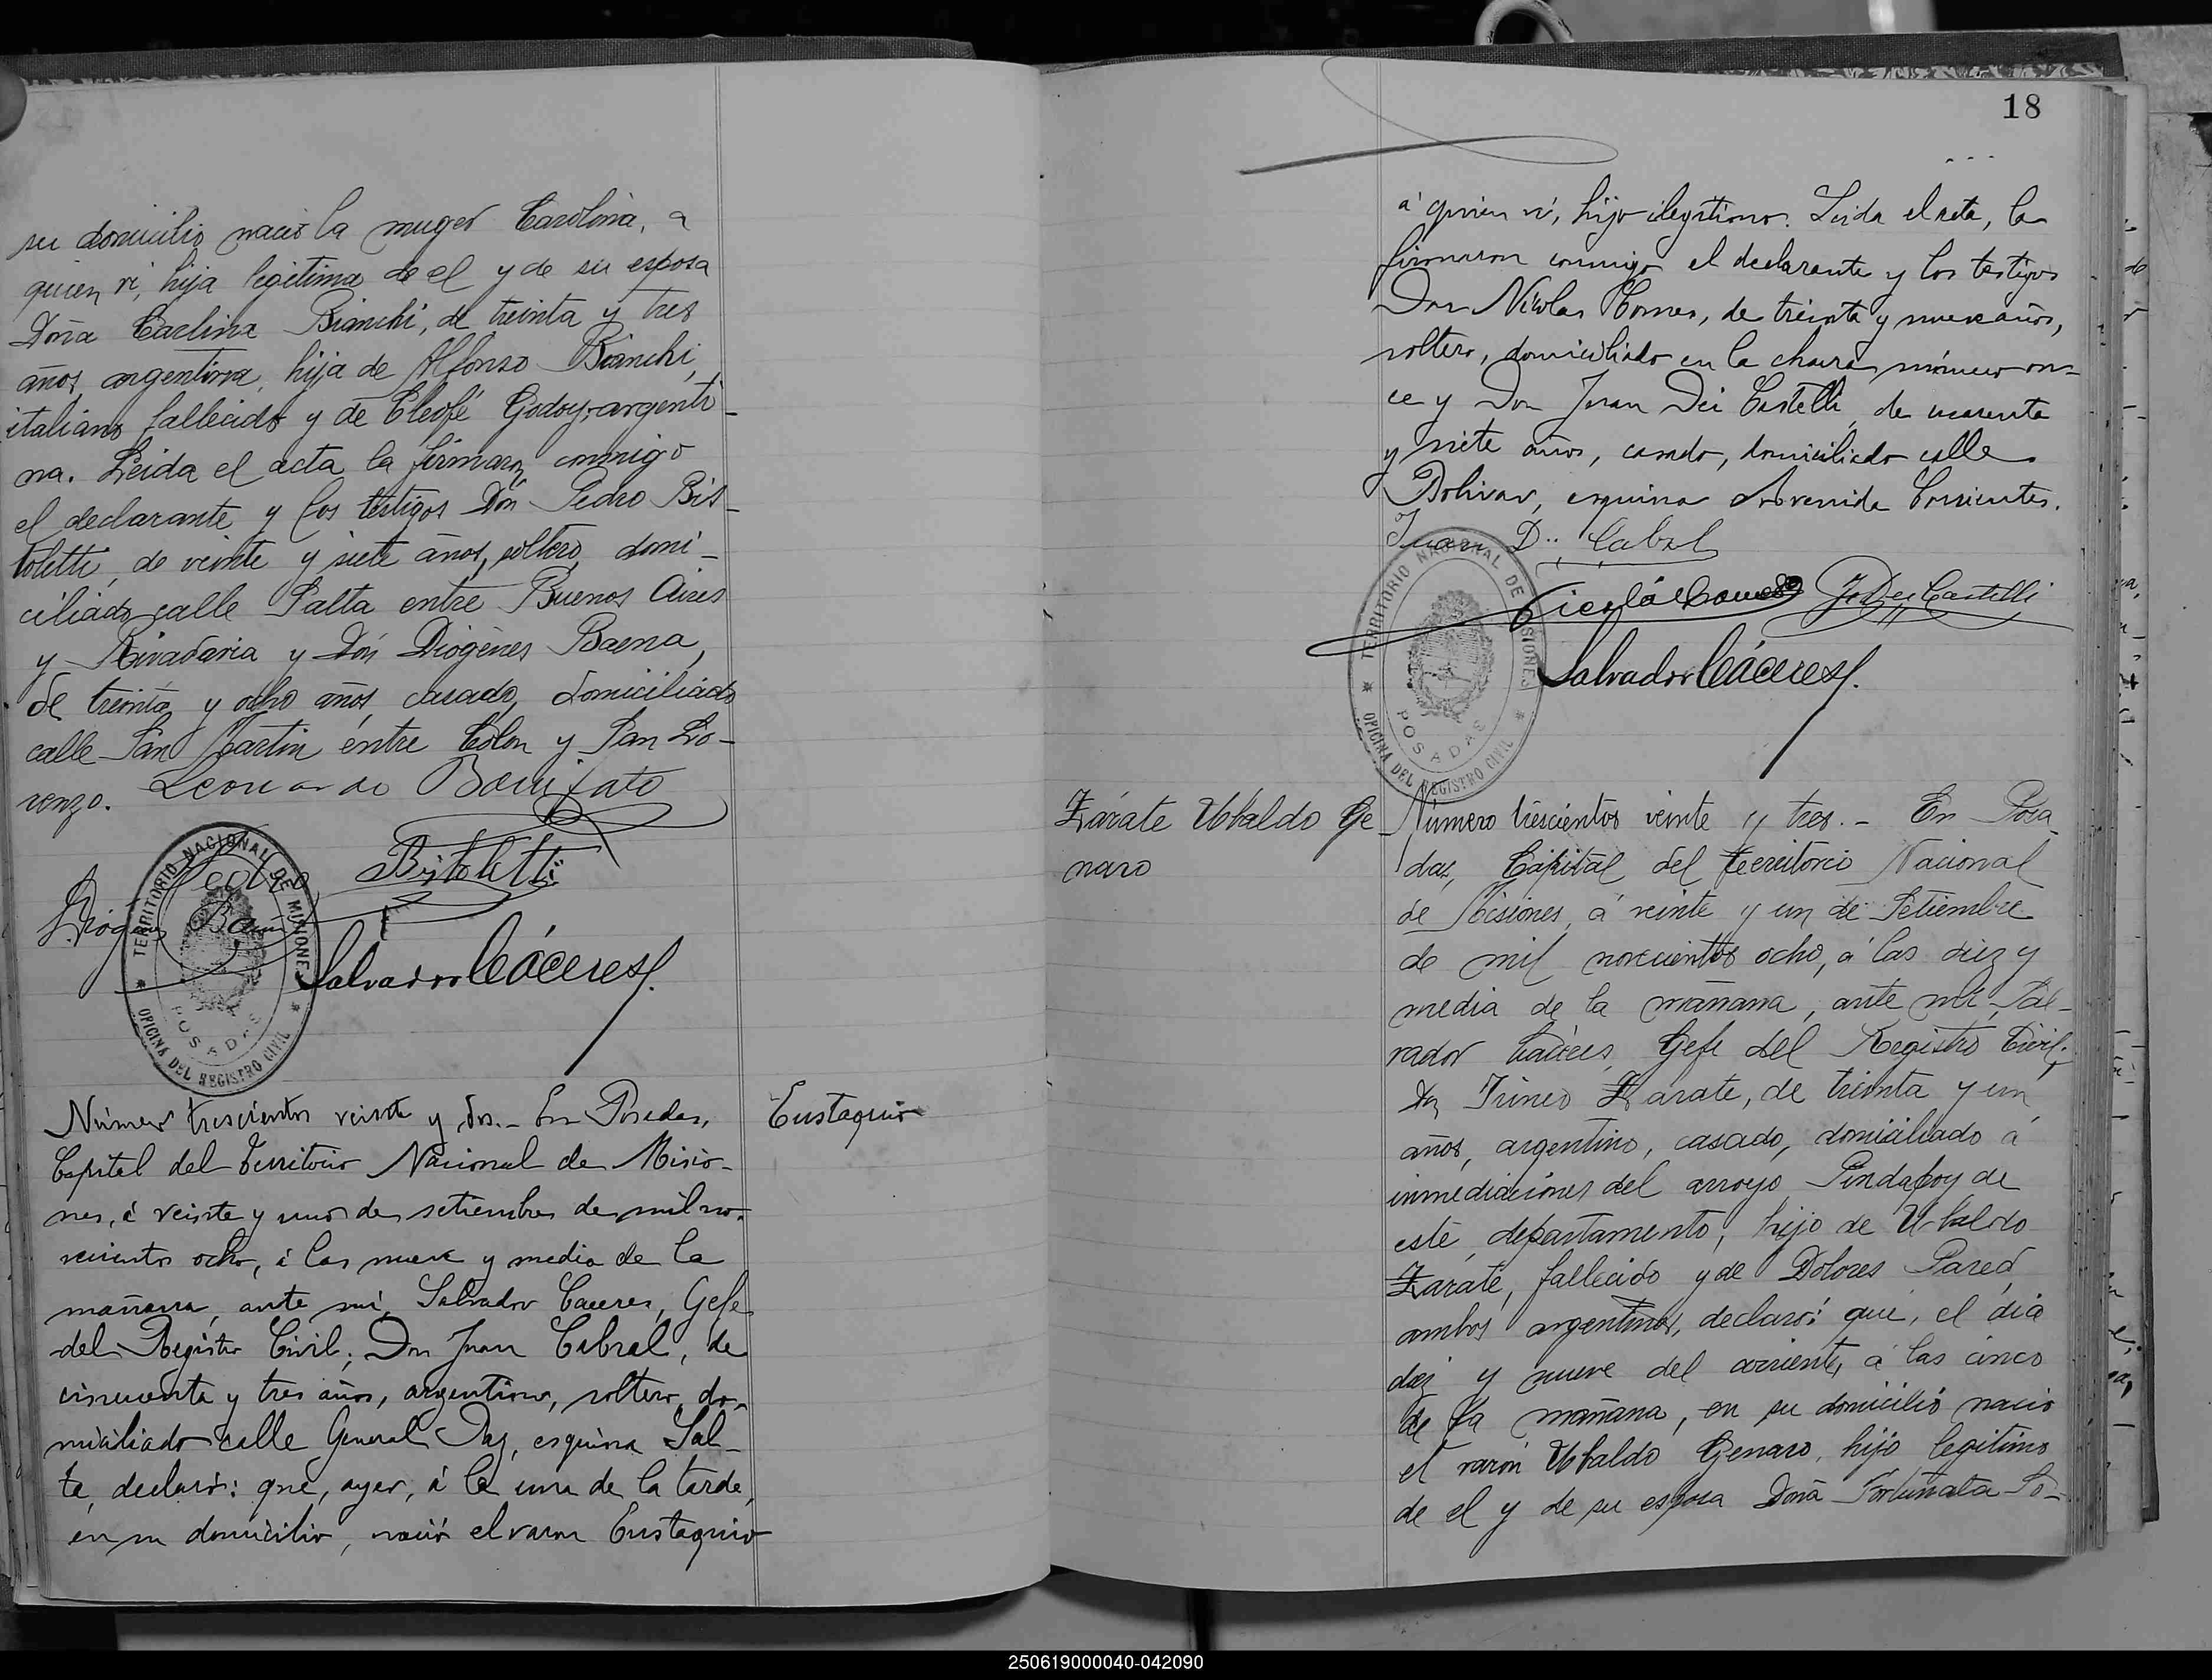 su domicilio nació la muger Carolina, a
quien ví, hija legitima de el y de su esposa
Doña Carlina Bianchi, de treinta y tres
años, argentina, hija de Alfonso Bianchi,
italiano fallecido y de Cleofé Godoy, argenti-
na. Leida el acta la firmaron conmigo
el declarante y los testigos Don Pedro Bis-
toletti, de veinte y siete años, soltero, domi-
ciliado calle Salta entre Buenos Aires
y Rivadavia y Dón Diógenes Baena,
de treinta y ocho años, casado, domiciliado
calle San Martin entre Colon y San Lo-
renzo. Leonardo Bonifato
Pedro Bistoletti
Diógenes Baena
Salvador Cáceres
TERRITORIO NACIONAL DE MISIONES
POSADAS
OFICINA DEL REGISTRO CIVIL
Eustaquio
Número trescientos veinte y dos.- En Posadas,
Capital del Territorio Nacional de Misio-
nes, á veinte y uno de setiembre de mil no-
vecientos ocho, á las nueve y media de la
mañana, ante mí, Salvador Caceres, Gefe
del Registro Civil; Don Juan Cabral, de
cincuenta y tres años, argentino, soltero, do-
miciliado calle General Paz, esquina Sal-
ta, declaró: que, ayer, á la una de la tarde,
en su domicilio, nació el varon Eustaquio
18
á quien ví, hijo ilegítimo. Leida el acta, la
firmaron conmigo el declarante y los testigos
Don Nicolas Comes, de treinta y nueve años,
soltero, domiciliado en la chacra número on-
ce y Don Juan Dei Castelli, de cuarenta
y siete años, casado, domiciliado calle
Bolivar, esquina Avenida Corrientes.
Juan D. Cabral
Nicolás Comes J. Dei Castelli
Salvador Cáceres
TERRITORIO NACIONAL DE MISIONES
POSADAS
OFICINA DEL REGISTRO CIVIL
Zárate Ubaldo Ge
naro
Número trescientos veinte y tres.- En Posa
das, Capital del Territorio Nacional
de Misiones, á veinte y un de Setiembre
de mil novecientos ocho, á las diez y
media de la mañana, ante mí, Sal-
vador Cáceres, Gefe del Registro Civil;
Dn Irineo Zarate, de treinta y un
años, argentino, casado, domiciliado á
inmediaciones del arroyo Pindapoy de
este departamento, hijo de Ubaldo
Zarate, fallecido y de Dolores Pared,
ambos argentinos, declaró: que, el dia
diez y nueve del corriente, á las cinco
de la mañana, en su domicilió nació
el varón Ubaldo Genaro, hijo legitimo
de el y de su esposa Doña Fortunata So-
250619000040-042090